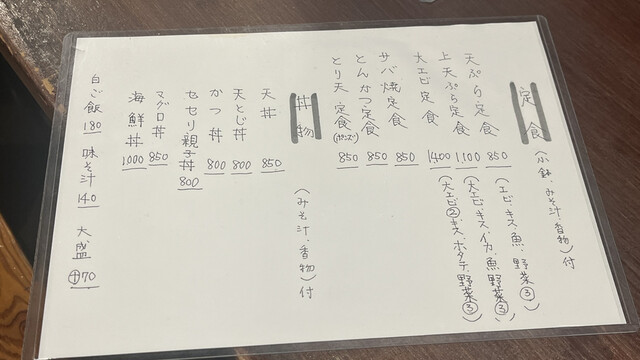 定食 (小鉢、みそ汁、香物)付
天ぷら定食 850 (エビ、キス、魚、野菜③)
上天ぷら定食 1,100 (大エビ、キス、イカ、魚、野菜③)
大エビ定食 1400 (大エビ②、キス、ホタテ、野菜③)
サバ焼定食 850
とんかつ定食 850
とり天定食(ポンズ) 850
丼物 (みそ汁、香物)付
天丼 850
天とじ丼 800
かつ丼 800
セセリ親子丼 800
マグロ丼 850
海鮮丼 1000
白ご飯 180 味そ汁 140 大盛 ⊕70